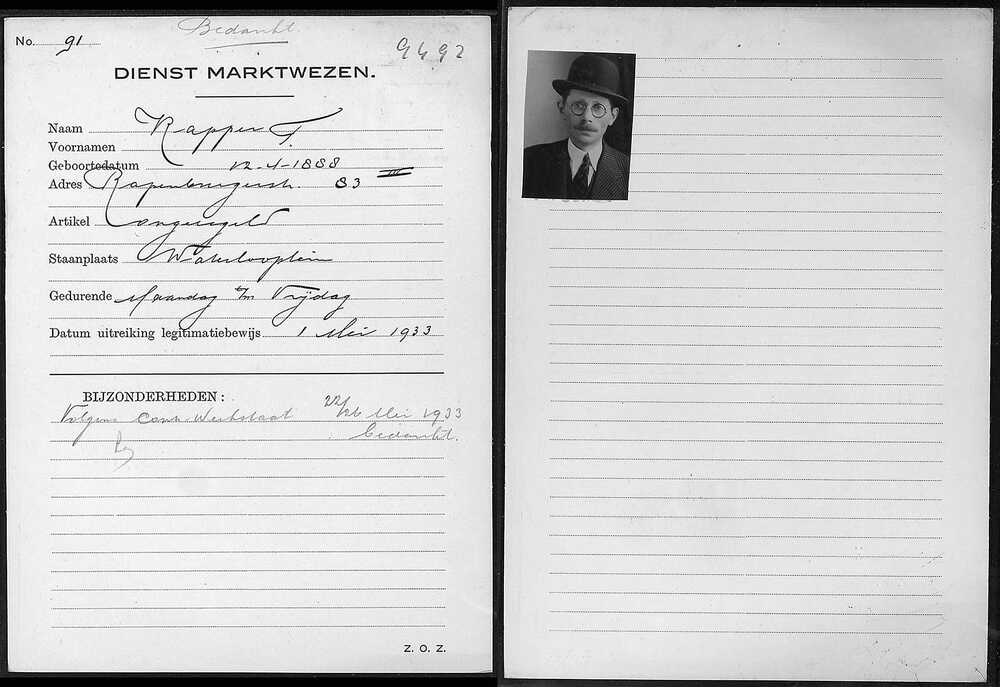 Bedankt.
No. 91
9492
DIENST MARKTWEZEN.
Naam Kapper F.
Voornamen
Geboortedatum 12-4-1888
Adres Rapenburgerstr. 83 III
Artikel ongeregeld
Staanplaats Waterlooplein
Gedurende Maandag t/m Vrijdag
Datum uitreiking legitimatiebewijs 1 Mei 1933
BIJZONDERHEDEN:
Volgens Contr. Weekstaat 22/26 Mei 1933
bedankt.
Z. O. Z.